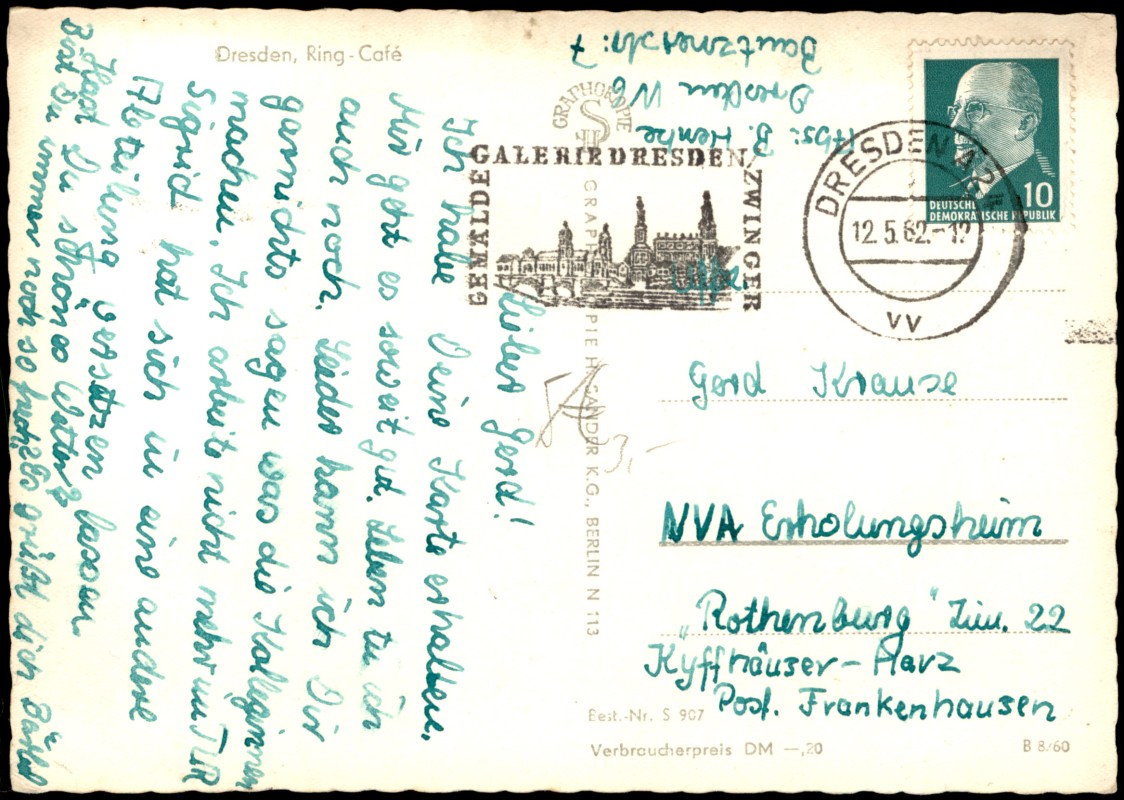 Dresden, Ring-Café
Lieber Gerd!
Ich habe Deine Karte erhalten.
Mir geht es soweit gut. Leben tu ich
auch noch. Leider kann ich Dir
garnichts sagen was die Kolleginnen
machen. Ich arbeite nicht mehr um
Sigrid hat sich in eine andere
Abteilung versetzen lassen.
Hast Du schönes Wetter?
Bist Du immer noch so frech? Es grüßt dich Bärbel
Abs: B. Henke
Dresden N 6
Bautznerstr: 7
GRAPHOKOPIE
S
H
GRAPHOKOPIE H. SANDER K.G., BERLIN N 113
GEMÄLDE GALERIE DRESDEN / ZWINGER
DRESDEN A24
12.5.62.-12
vv
10
DEUTSCHE
DEMOKRATISCHE REPUBLIK
Uffz.
Gerd Krause
NVA Erholungsheim
„Rothenburg" Zim. 22
Kyffhäuser-Harz
Post. Frankenhausen
3,-
Best.-Nr. S 907
Verbraucherpreis DM —,20
B 8/60